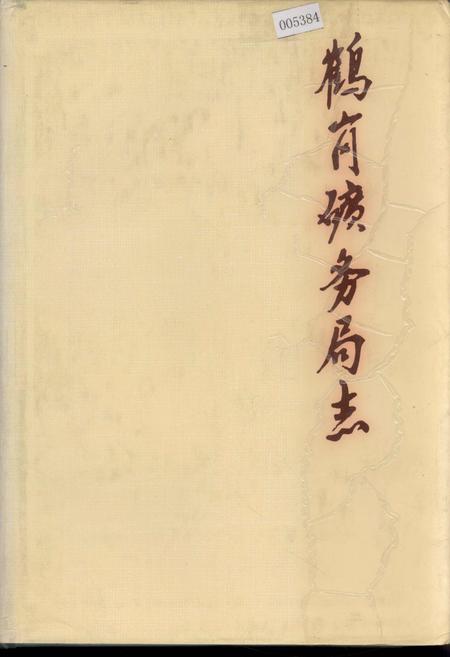 005384
鶴岗礦务局志